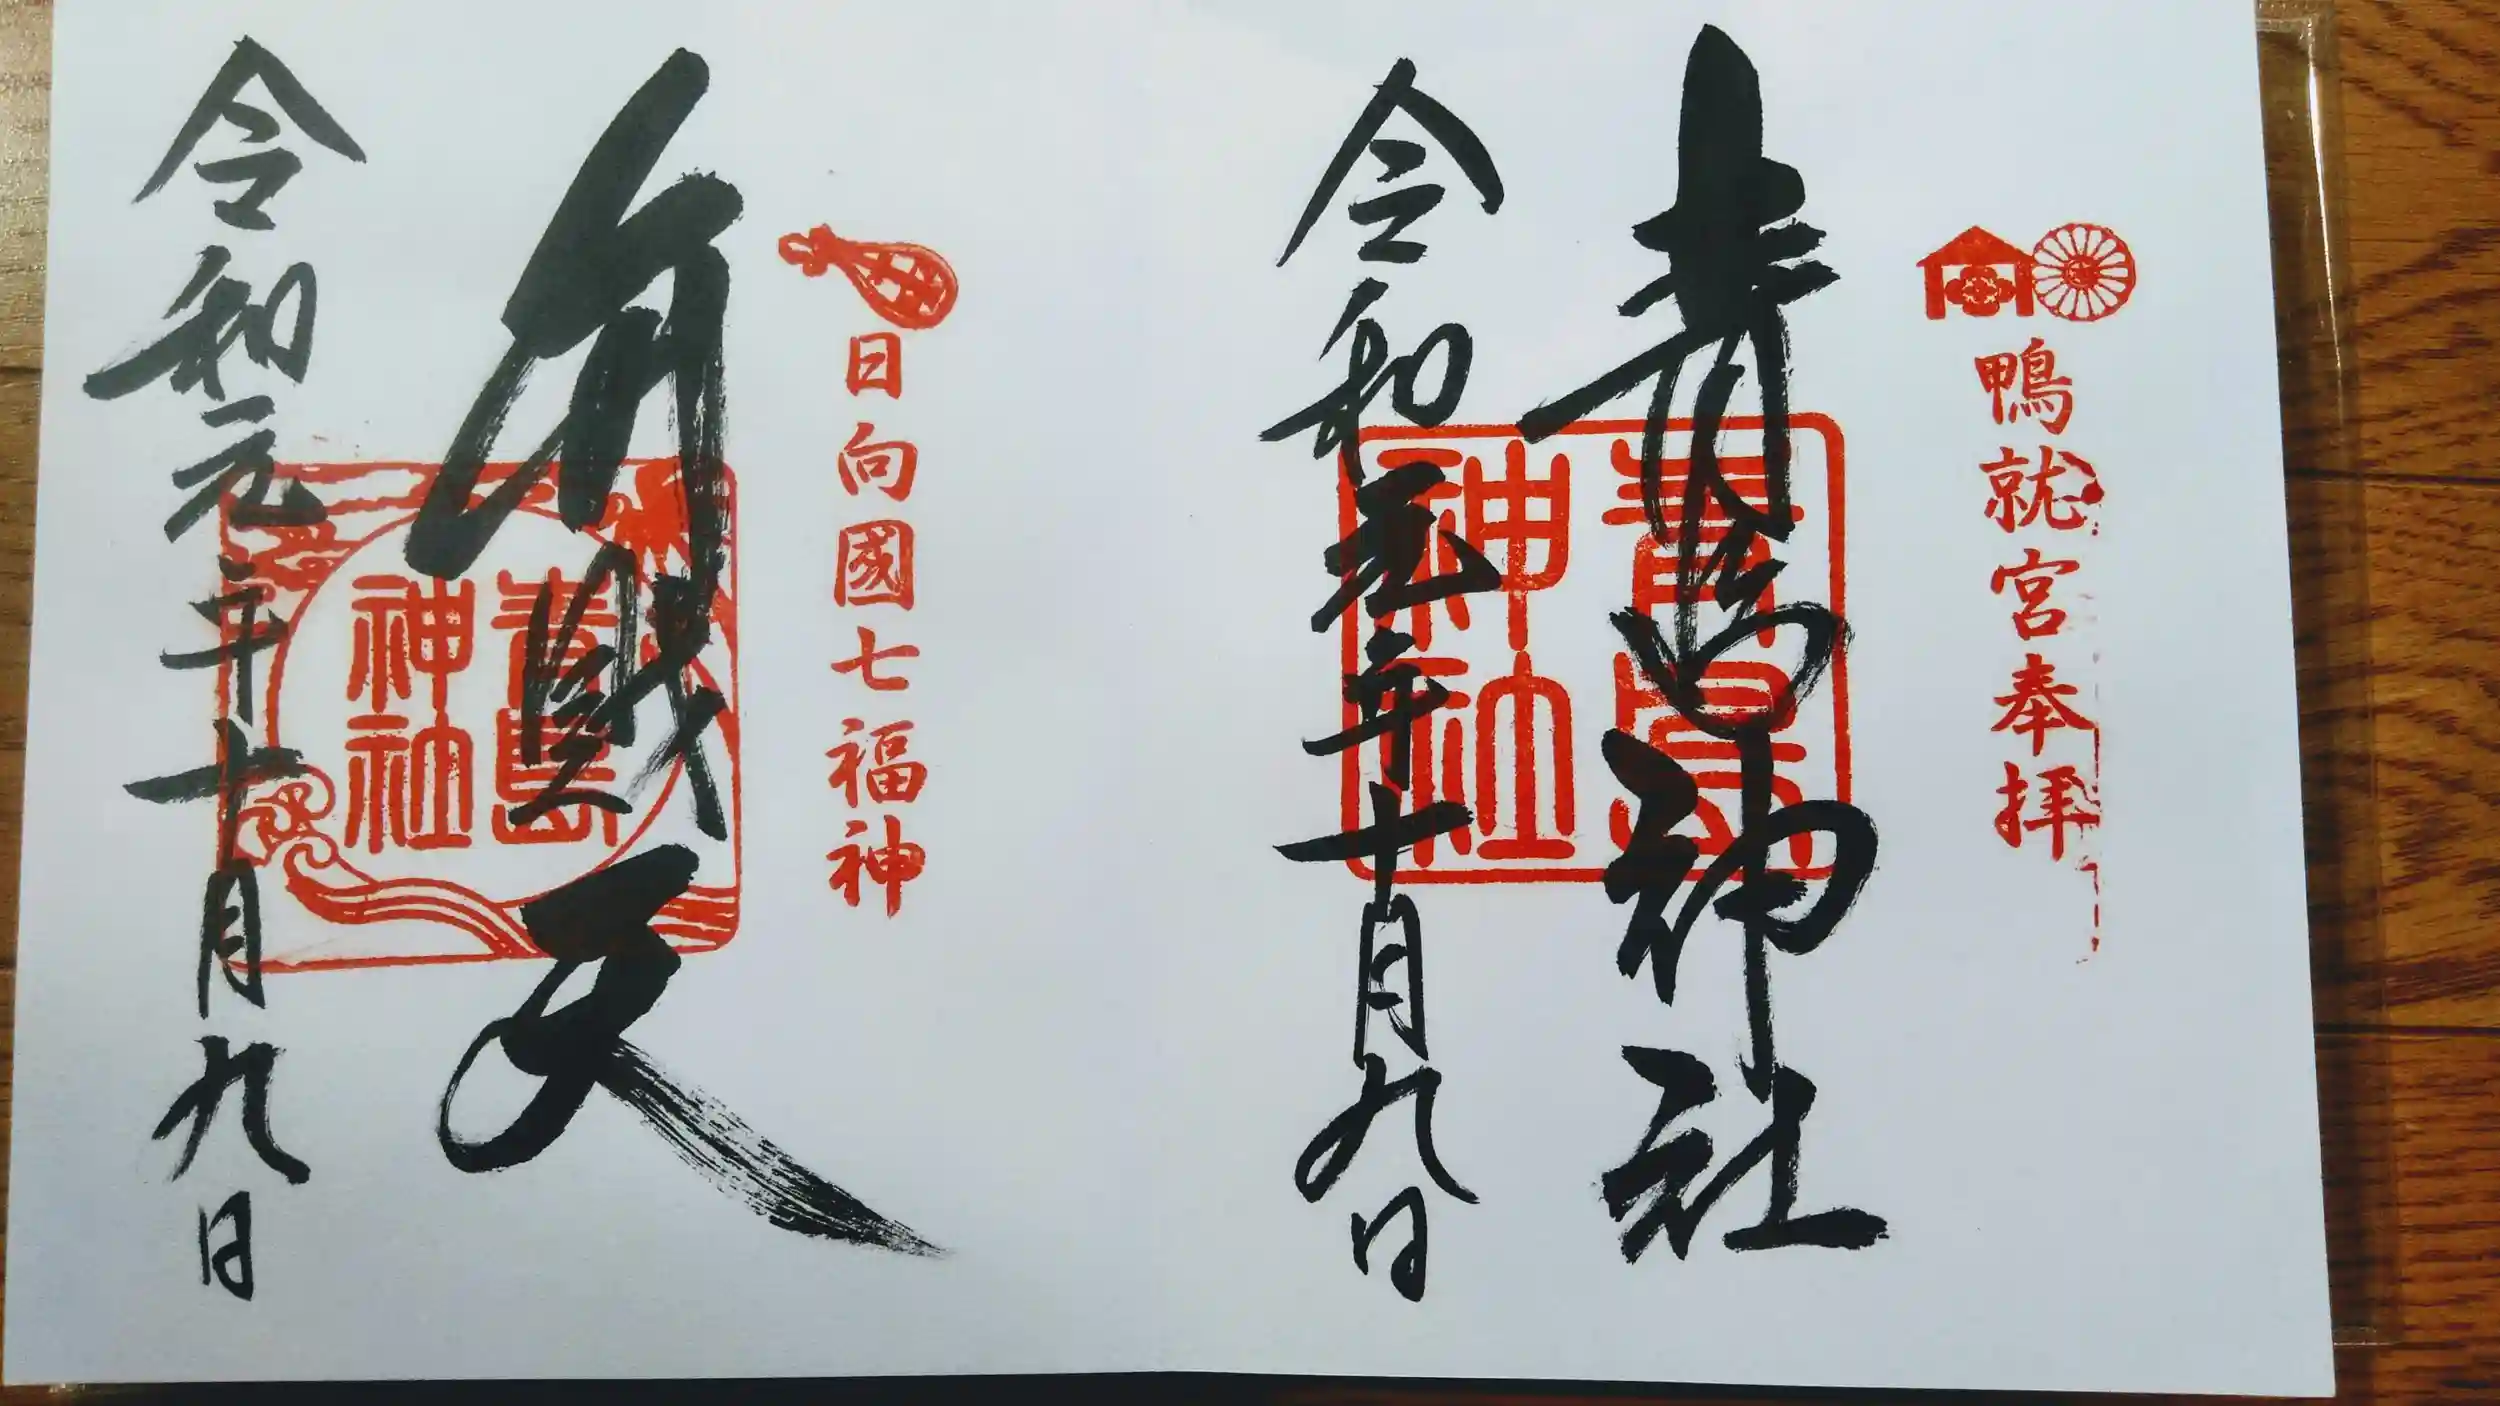 鴨就宮奉拝
青島神社
青島
神社
令和元年十月九日
日向國七福神
弁財天
青島
神社
令和元年十月九日